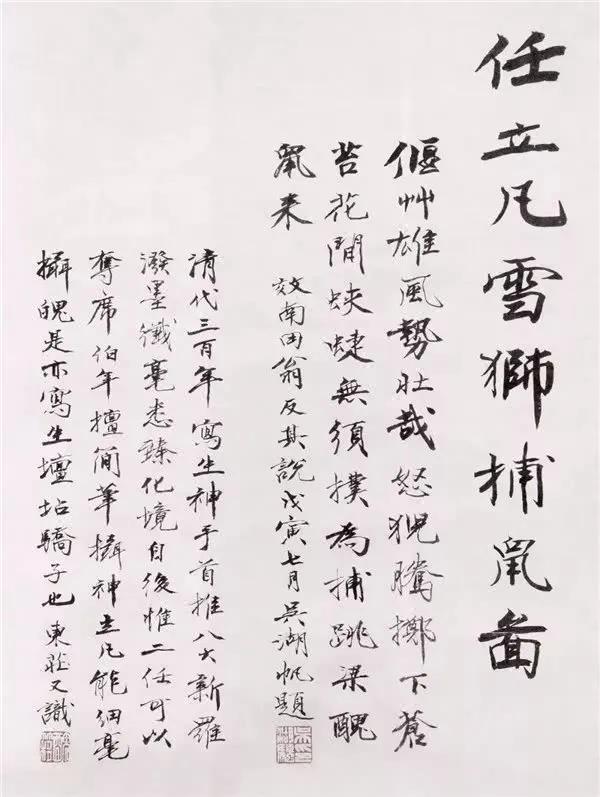 任立凡雪獅捕鼠啚
偃艸雄風勢壯哉怒猊騰擲下蒼
苔花間蛺蜨無須撲為捕跳梁醜
鼠来 效南田翁反其說戊寅七月吳湖帆題
清代三百年寫生神手首推八大新羅
潑墨纖毫悉臻化境自後惟二任可以
奪席伯年擅簡筆攝神立凡能細毫
攝魄是亦寫生壇坫驕子也 東莊又識